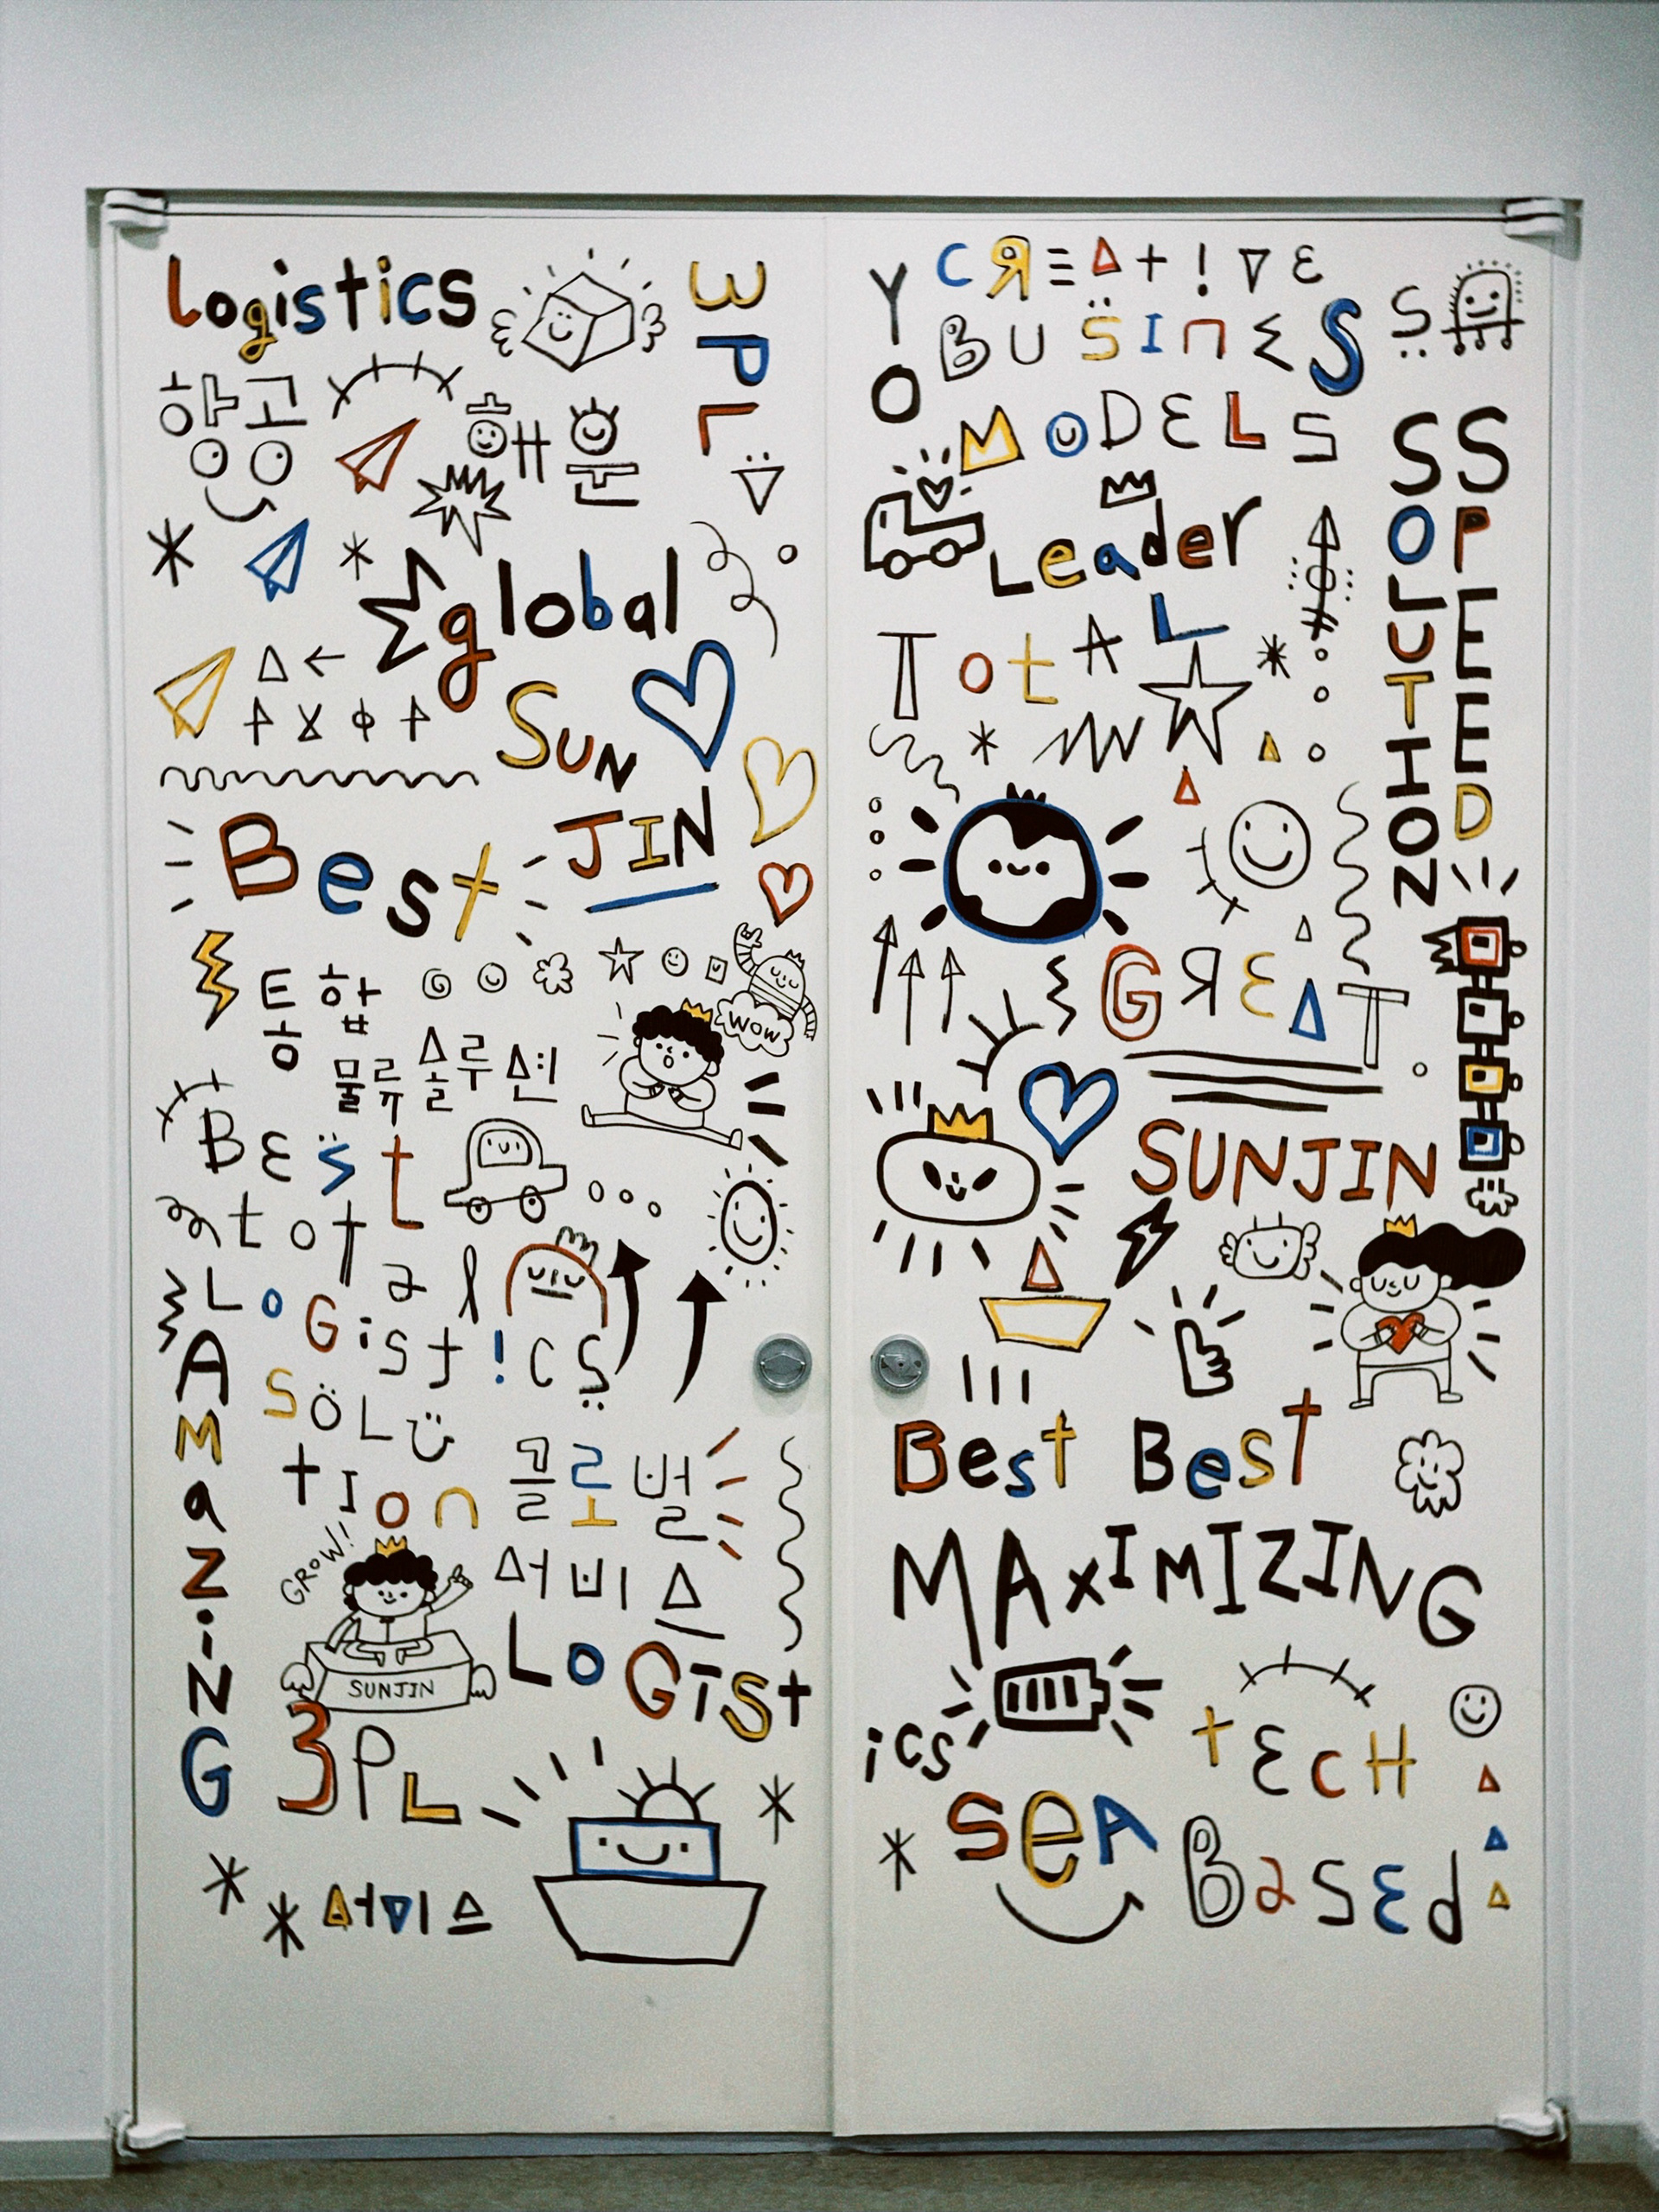 logistics
3PL
항공
해운
global
SUN
JIN
Best
통합
물류 솔루션
WOW
BEst
total
LoGist!cS
SÖLU
tIon
AMaZiNG
글로벌
서비스
GROW!
SUNJIN
LoGiSt
3PL
서비스
YO
CREAT!VE
BUSINESS
MoDELS
Leader
TotAL
SOLUTION
SPEED
GREAT
SUNJIN
Best Best
MAxIMIZING
ics
tEcH
SeA
BaSEd